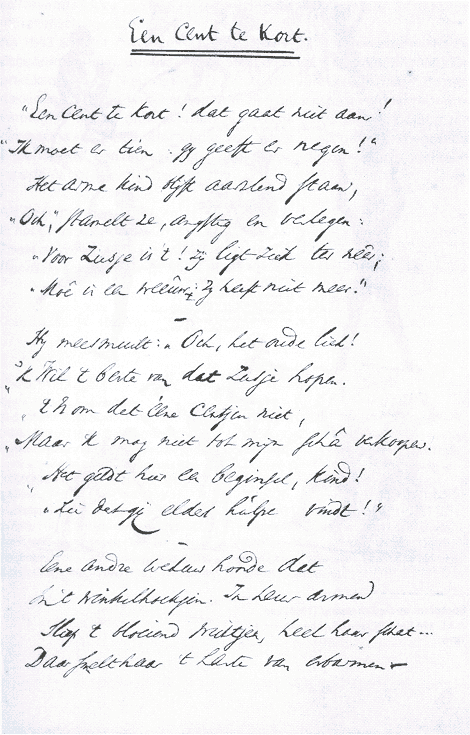 Een Cent te Kort.
"Een Cent te kort! dat gaat niet aan!
"Ik moet er tien: gy geeft er negen!"
Het arme kind blyft aarslend staan,
"Och", stamelt ze, angstig en verlegen:
"Voor Zusje is 't! zy ligt ziek ter neêr;
"Moê is een weêuw; zy heeft niet meer."
Hy meesmuilt: "Och, het oude lied!
"'k Wil 't beste van dat Zusje hopen.
"'t Is om det ééne Centjen niet,
"Maar ik mag niet tot mijn schâ verkoopen.
"Het geldt hier een beginsel, kind!
"Zie dat gij elders hulpe vindt!"
Eene andre weduw hoorde dat
In 't winkelhoekjen. In heur armen
Sliep 't bloeiend wichtjen, heel haar schat...
Daar smelt haar 't harte van erbarmen